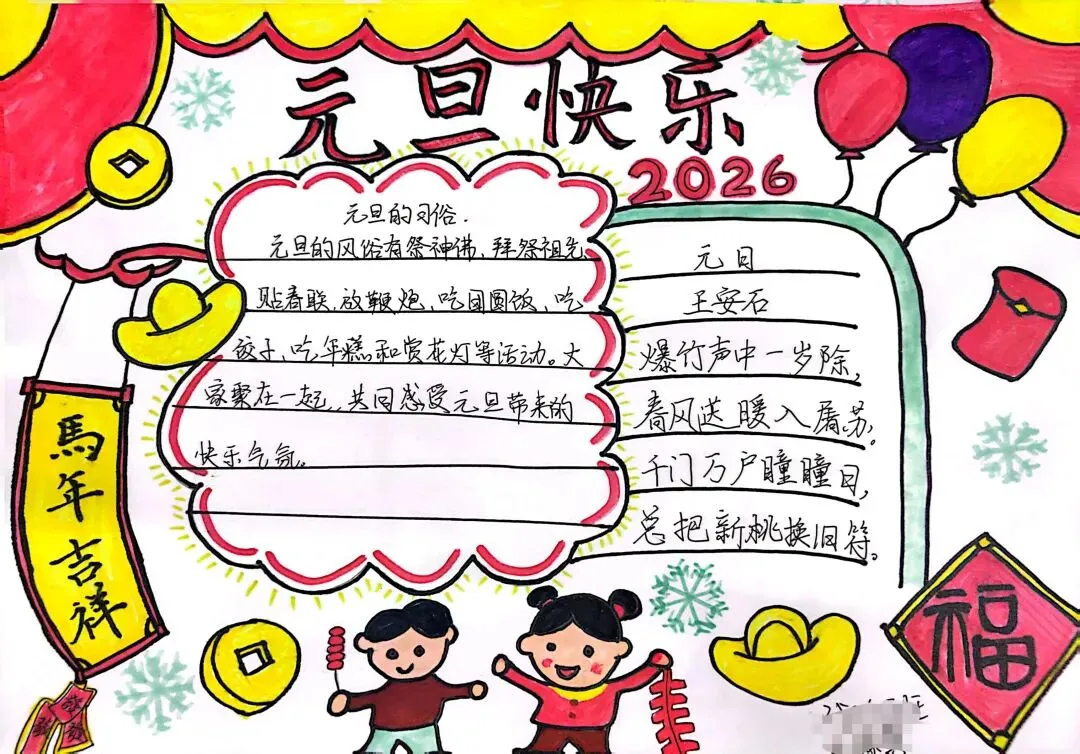 元旦快乐
2026
元旦的习俗.
元旦的风俗有祭神佛、拜祭祖先、
贴春联、放鞭炮、吃团圆饭、吃
饺子、吃年糕和赏花灯等活动。大
家聚在一起,共同感受元旦带来的
快乐气氛。
元日
王安石
爆竹声中一岁除,
春风送暖入屠苏。
千门万户瞳瞳日,
总把新桃换旧符。
馬年吉祥
福